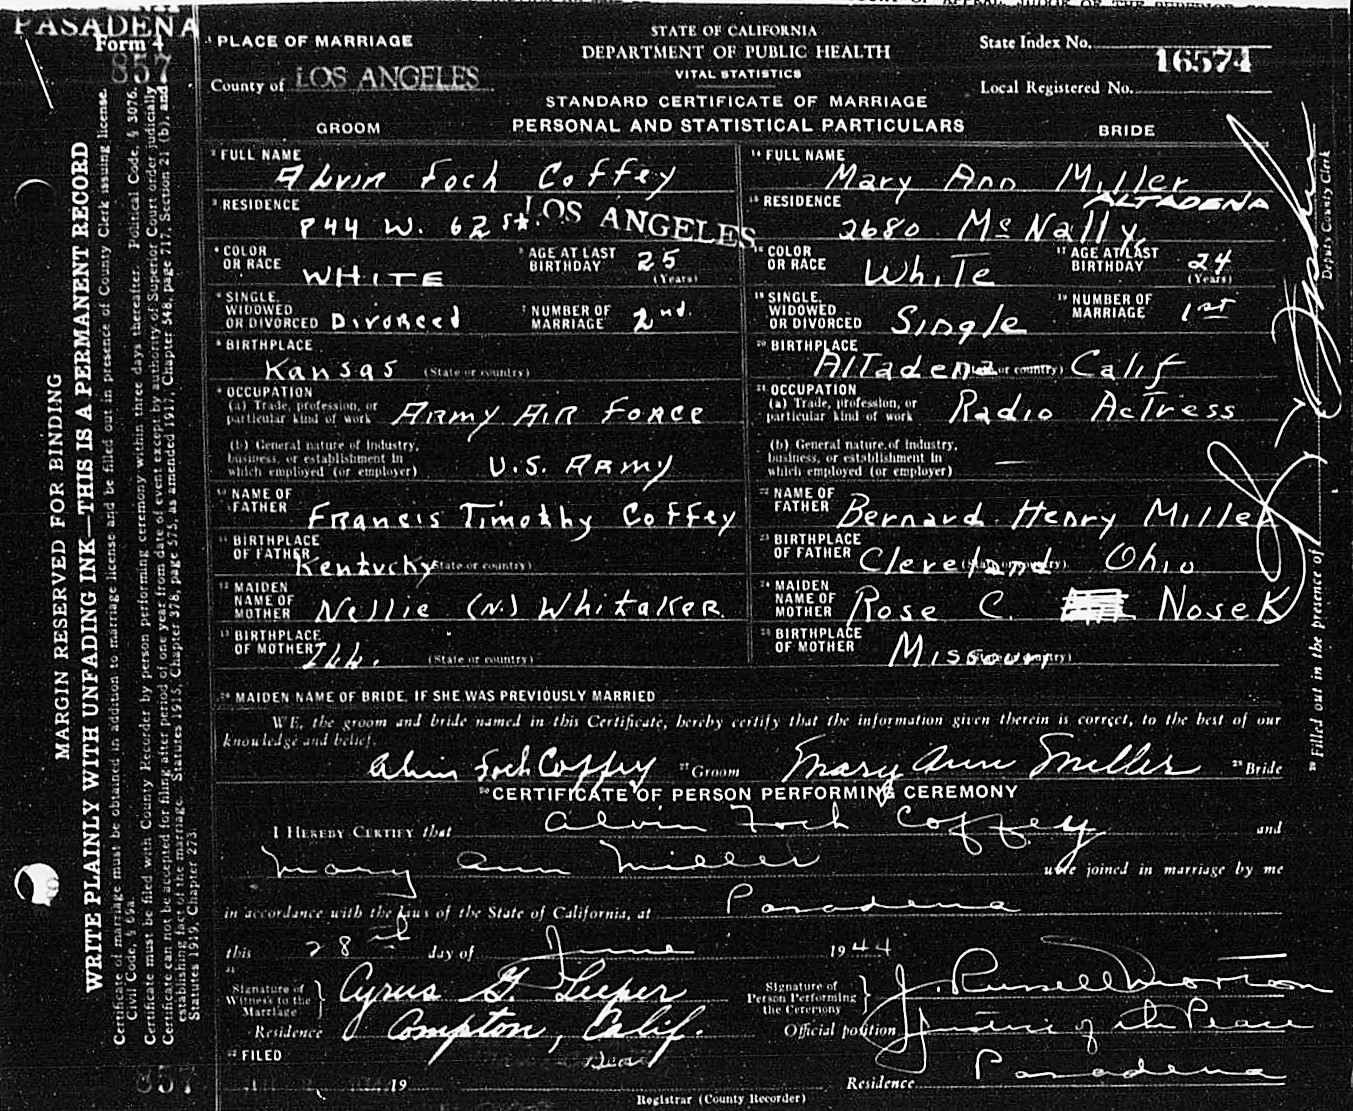 PASADENA
Form 4
857
MARGIN RESERVED FOR BINDING
WRITE PLAINLY WITH UNFADING INK—THIS IS A PERMANENT RECORD
Certificate of marriage must be obtained in addition to marriage license and be filled out in presence of County Clerk issuing license.
Civil Code, § 69a.
Certificate must be filed with County Recorder by person performing ceremony within three days thereafter. Political Code, § 3076.
Certificate can not be accepted for filing after period of one year from date of event except by authority of Superior Court order judicially
establishing fact of the marriage. Statutes 1915, Chapter 378, page 575, as amended 1917, Chapter 548, page 717, Section 21 (b), and
Statutes 1919, Chapter 273.
857
PLACE OF MARRIAGE
County of LOS ANGELES
STATE OF CALIFORNIA
DEPARTMENT OF PUBLIC HEALTH
VITAL STATISTICS
STANDARD CERTIFICATE OF MARRIAGE
PERSONAL AND STATISTICAL PARTICULARS
State Index No.
16574
Local Registered No.
GROOM
2 FULL NAME Alvin Foch Coffey
3 RESIDENCE 844 W. 62 St. LOS ANGELES
4 COLOR OR RACE WHITE
5 AGE AT LAST BIRTHDAY 25 (Years)
6 SINGLE, WIDOWED OR DIVORCED Divorced
7 NUMBER OF MARRIAGE 2nd.
8 BIRTHPLACE Kansas (State or country)
9 OCCUPATION
(a) Trade, profession, or particular kind of work ARMY AIR FORCE
(b) General nature of industry, business, or establishment in which employed (or employer) U.S. ARMY
10 NAME OF FATHER Francis Timothy Coffey
11 BIRTHPLACE OF FATHER Kentucky (State or country)
12 MAIDEN NAME OF MOTHER Nellie (N.) Whitaker
13 BIRTHPLACE OF MOTHER Ill. (State or country)
BRIDE
14 FULL NAME Mary Ann Miller
15 RESIDENCE 2680 McNally, ALTADENA
16 COLOR OR RACE White
17 AGE AT LAST BIRTHDAY 24 (Years)
18 SINGLE, WIDOWED OR DIVORCED Single
19 NUMBER OF MARRIAGE 1st
20 BIRTHPLACE Altadena (State or country) Calif
21 OCCUPATION
(a) Trade, profession, or particular kind of work Radio Actress
(b) General nature of industry, business, or establishment in which employed (or employer) —
22 NAME OF FATHER Bernard Henry Miller
23 BIRTHPLACE OF FATHER Cleveland (State or country) Ohio
24 MAIDEN NAME OF MOTHER Rose C. Nosek
25 BIRTHPLACE OF MOTHER Missouri (State or country)
26 MAIDEN NAME OF BRIDE, IF SHE WAS PREVIOUSLY MARRIED
WE, the groom and bride named in this Certificate, hereby certify that the information given therein is correct, to the best of our
knowledge and belief.
Alvin Foch Coffey 27 Groom Mary Ann Miller 28 Bride
29 Filled out in the presence of
Deputy County Clerk
30 CERTIFICATE OF PERSON PERFORMING CEREMONY
I HEREBY CERTIFY that Alvin Foch Coffey and
Mary Ann Miller were joined in marriage by me
in accordance with the laws of the State of California, at Pasadena
this 28th day of June 1944
Signature of Witness to the Marriage Cyrus G. Leeper
Residence Compton, Calif.
Signature of Person Performing the Ceremony J. Russell Morton
Official position Justice of the Peace
Residence Pasadena
FILED
19
Registrar (County Recorder)